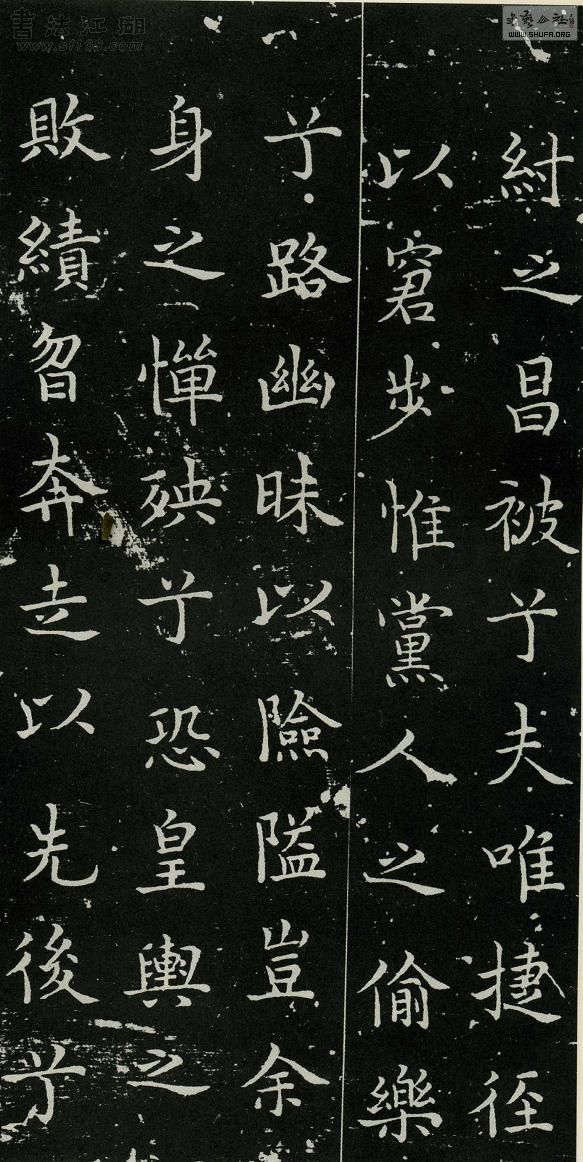 紂之昌被兮夫唯捷徑
以窘步惟黨人之偷樂
兮路幽昧以險隘豈余
身之憚殃兮恐皇輿之
敗績忽奔走以先後兮
書法江湖
WWW.SHUFA.ORG